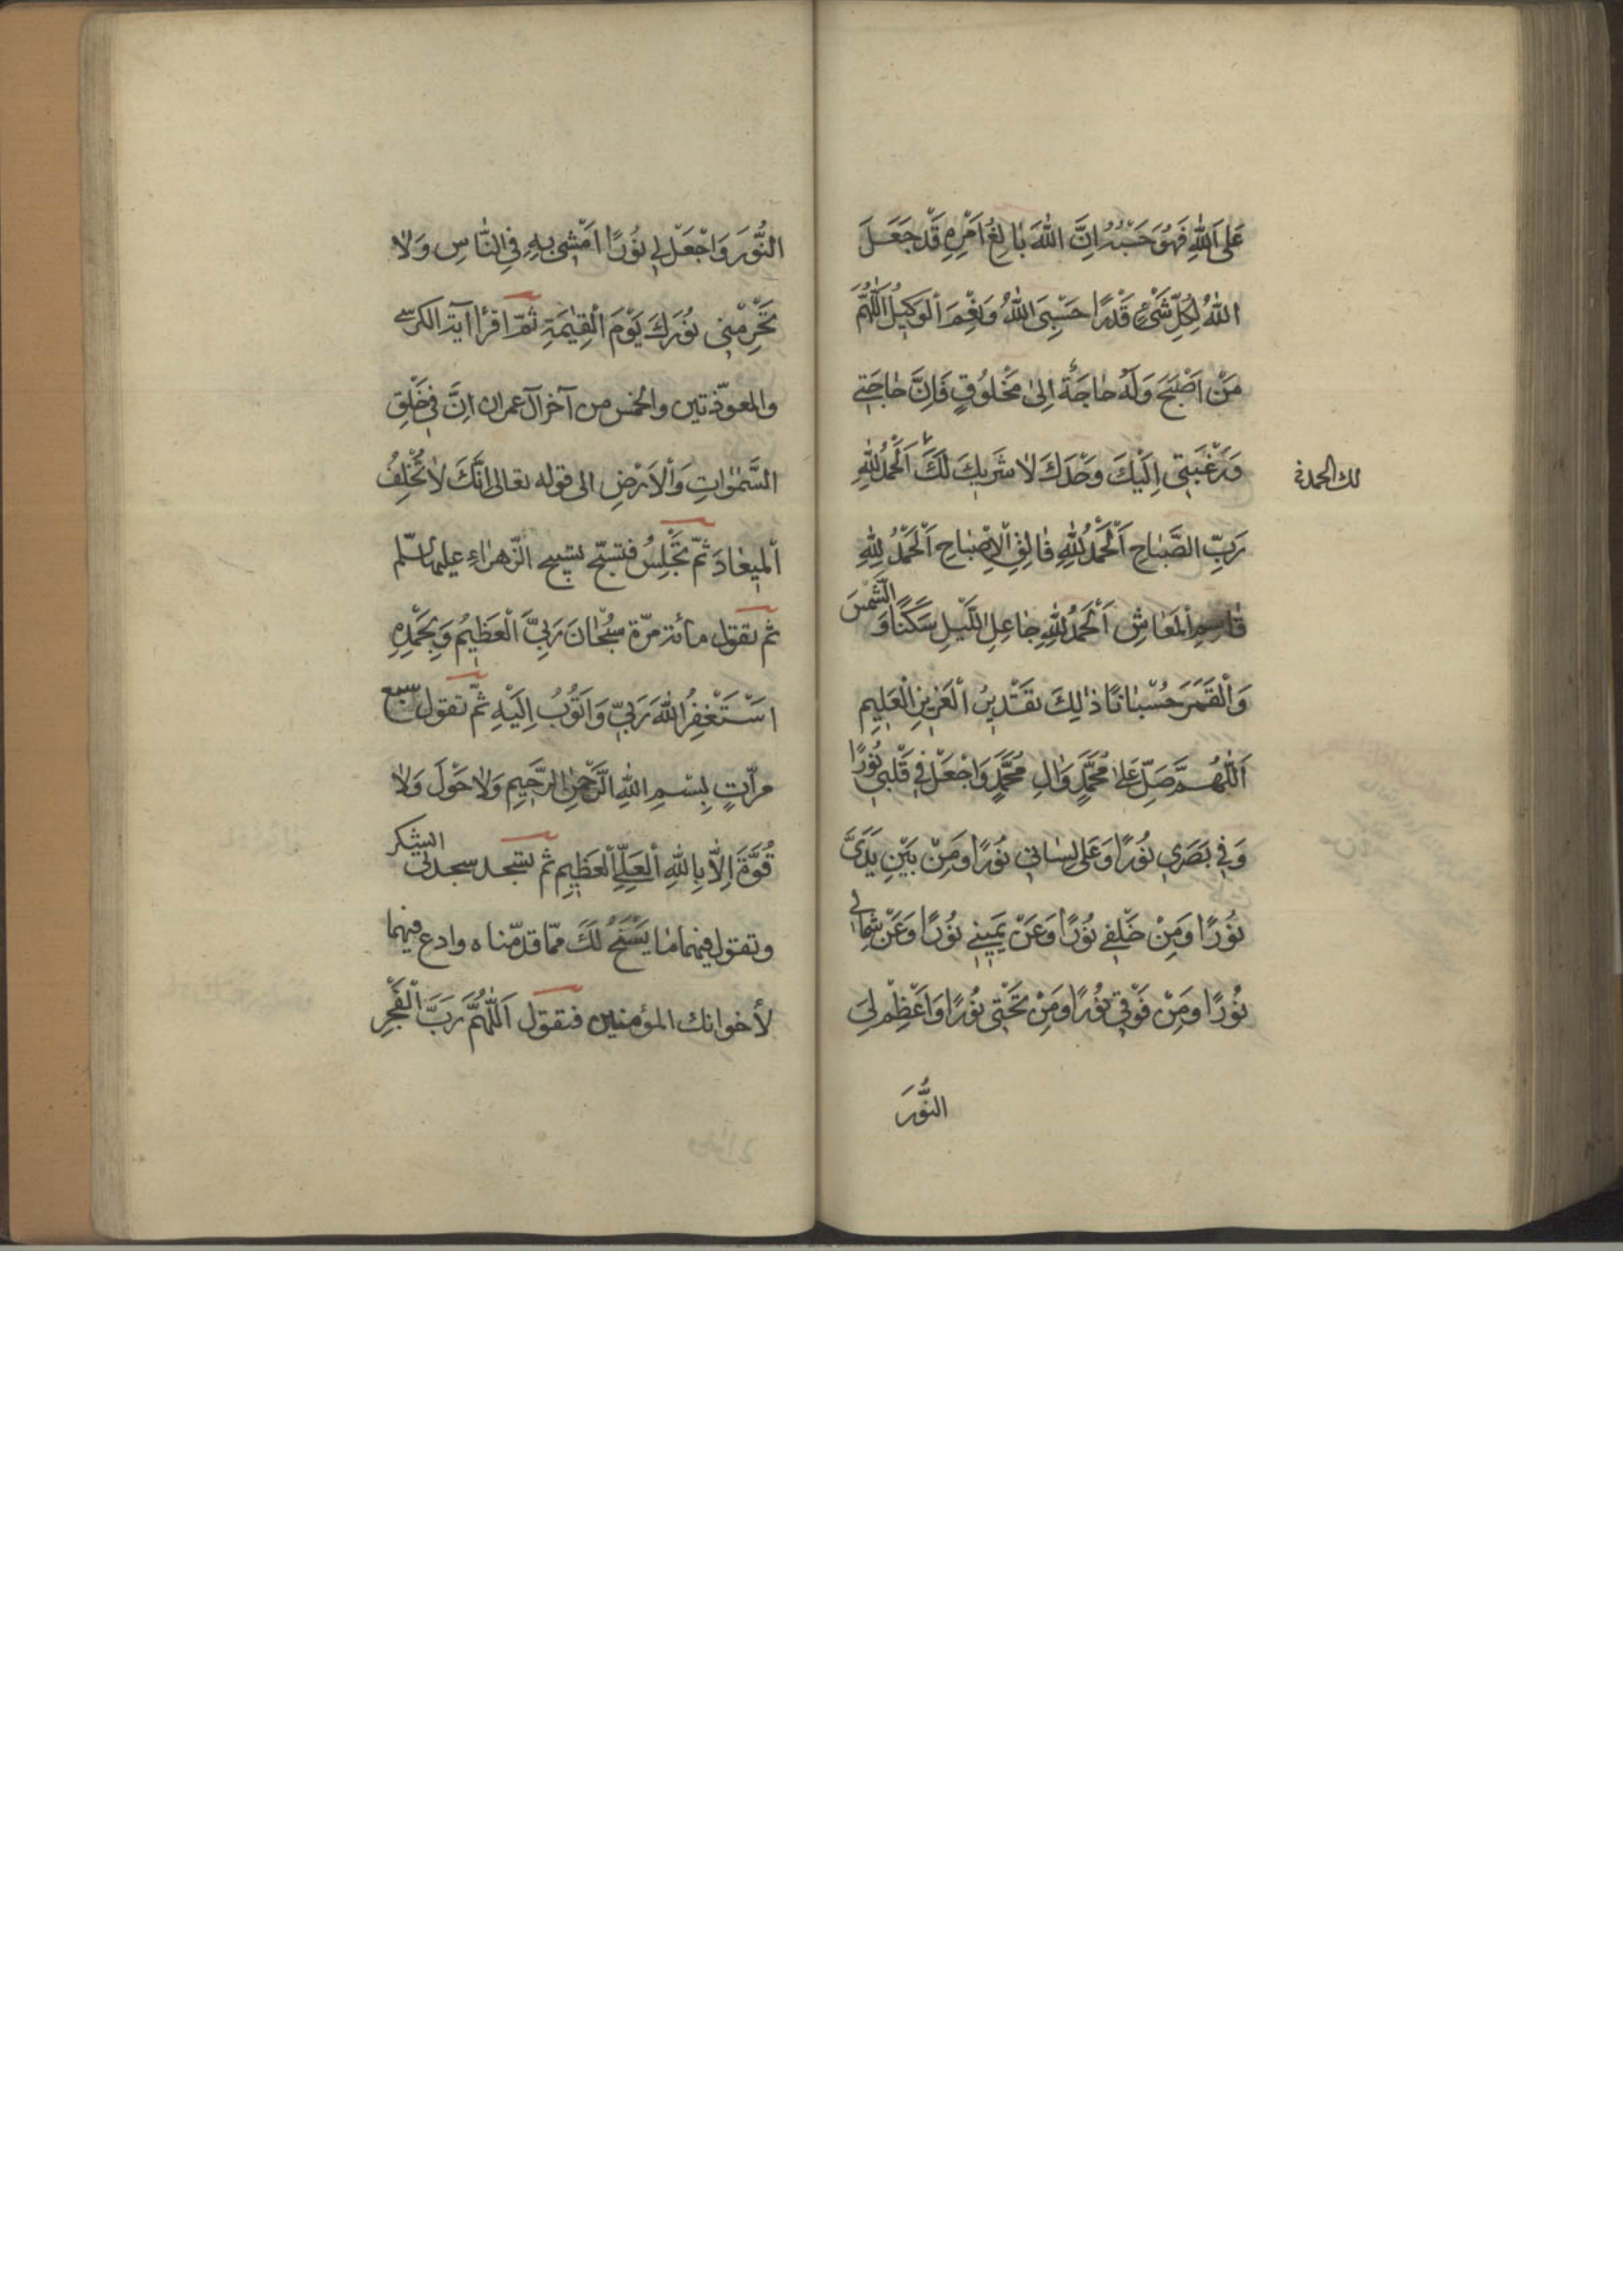 عَلَى اللّٰهِ فَهُوَ حَسْبُهُ اِنَّ اللّٰهَ بَالِغُ اَمْرِهِ قَدْ جَعَلَ
اللّٰهُ لِكُلِّ شَيْءٍ قَدْرًا حَسْبِيَ اللّٰهُ وَنِعْمَ الْوَكِيلُ اَللّٰهُمَّ
مَنْ اَصْبَحَ وَلَهُ حَاجَةٌ اِلىٰ مَخْلُوقٍ فَاِنَّ حَاجَتِي
وَرَغْبَتِي اِلَيْكَ وَحْدَكَ لَا شَرِيكَ لَكَ اَلْحَمْدُ لِلّٰهِ
لك الحمد
رَبِّ الصَّبَاحِ اَلْحَمْدُ لِلّٰهِ فَالِقِ الْاِصْبَاحِ اَلْحَمْدُ لِلّٰهِ
قَاسِمِ الْمَعَاشِ اَلْحَمْدُ لِلّٰهِ جَاعِلِ اللَّيْلِ سَكَنًا وَ الشَّمْسَ
وَالْقَمَرَ حُسْبَانًا ذٰلِكَ تَقْدِيرُ الْعَزِيزِ الْعَلِيمِ
اَللّٰهُمَّ صَلِّ عَلىٰ مُحَمَّدٍ وَاٰلِ مُحَمَّدٍ وَاجْعَلْ فِي قَلْبِي نُورًا
وَفِي بَصَرِي نُورًا وَعَلىٰ لِسَانِي نُورًا وَمِنْ بَيْنِ يَدَيَّ
نُورًا وَمِنْ خَلْفِي نُورًا وَعَنْ يَمِينِي نُورًا وَعَنْ شِمَالِي
نُورًا وَمِنْ فَوْقِي نُورًا وَمِنْ تَحْتِي نُورًا وَاَعْظِمْ لِيَ
النُّورَ
النُّورَ وَاجْعَلْ لِي نُورًا اَمْشِي بِهِ فِي النَّاسِ وَلَا
تَحْرِمْنِي نُورَكَ يَوْمَ الْقِيٰمَةِ ثُمّ اقرأ آية الكرسي
والمعوّذتين والخمس من آخر آل عمران اِنَّ فِي خَلْقِ
السَّمٰوَاتِ وَالْاَرْضِ الى قوله تعالى اِنَّكَ لَا تُخْلِفُ
الْمِيعَادَ ثمّ تَجْلِسُ فتسبّح تسبيح الزّهراءِ عليها السّلم
ثم تقول مائة مرّة سُبْحَانَ رَبِّيَ الْعَظِيمُ وَبِحَمْدِهِ
اَسْتَغْفِرُ اللّٰهَ رَبِّي وَاَتُوبُ اِلَيْهِ ثمّ تقول سبع
مرّاتٍ بِسْمِ اللّٰهِ الرَّحْمٰنِ الرَّحِيمِ وَلَا حَوْلَ وَلَا
قُوَّةَ اِلَّا بِاللّٰهِ الْعَلِيِّ الْعَظِيمِ ثم تسجد سجدتى الشكر
وتقول فيهما مَا يَسْنَحُ لَكَ ممّا قدّمناه وادع فيهما
لأخوانك المؤمنين فتقول اَللّٰهُمَّ رَبَّ الْفَجْرِ